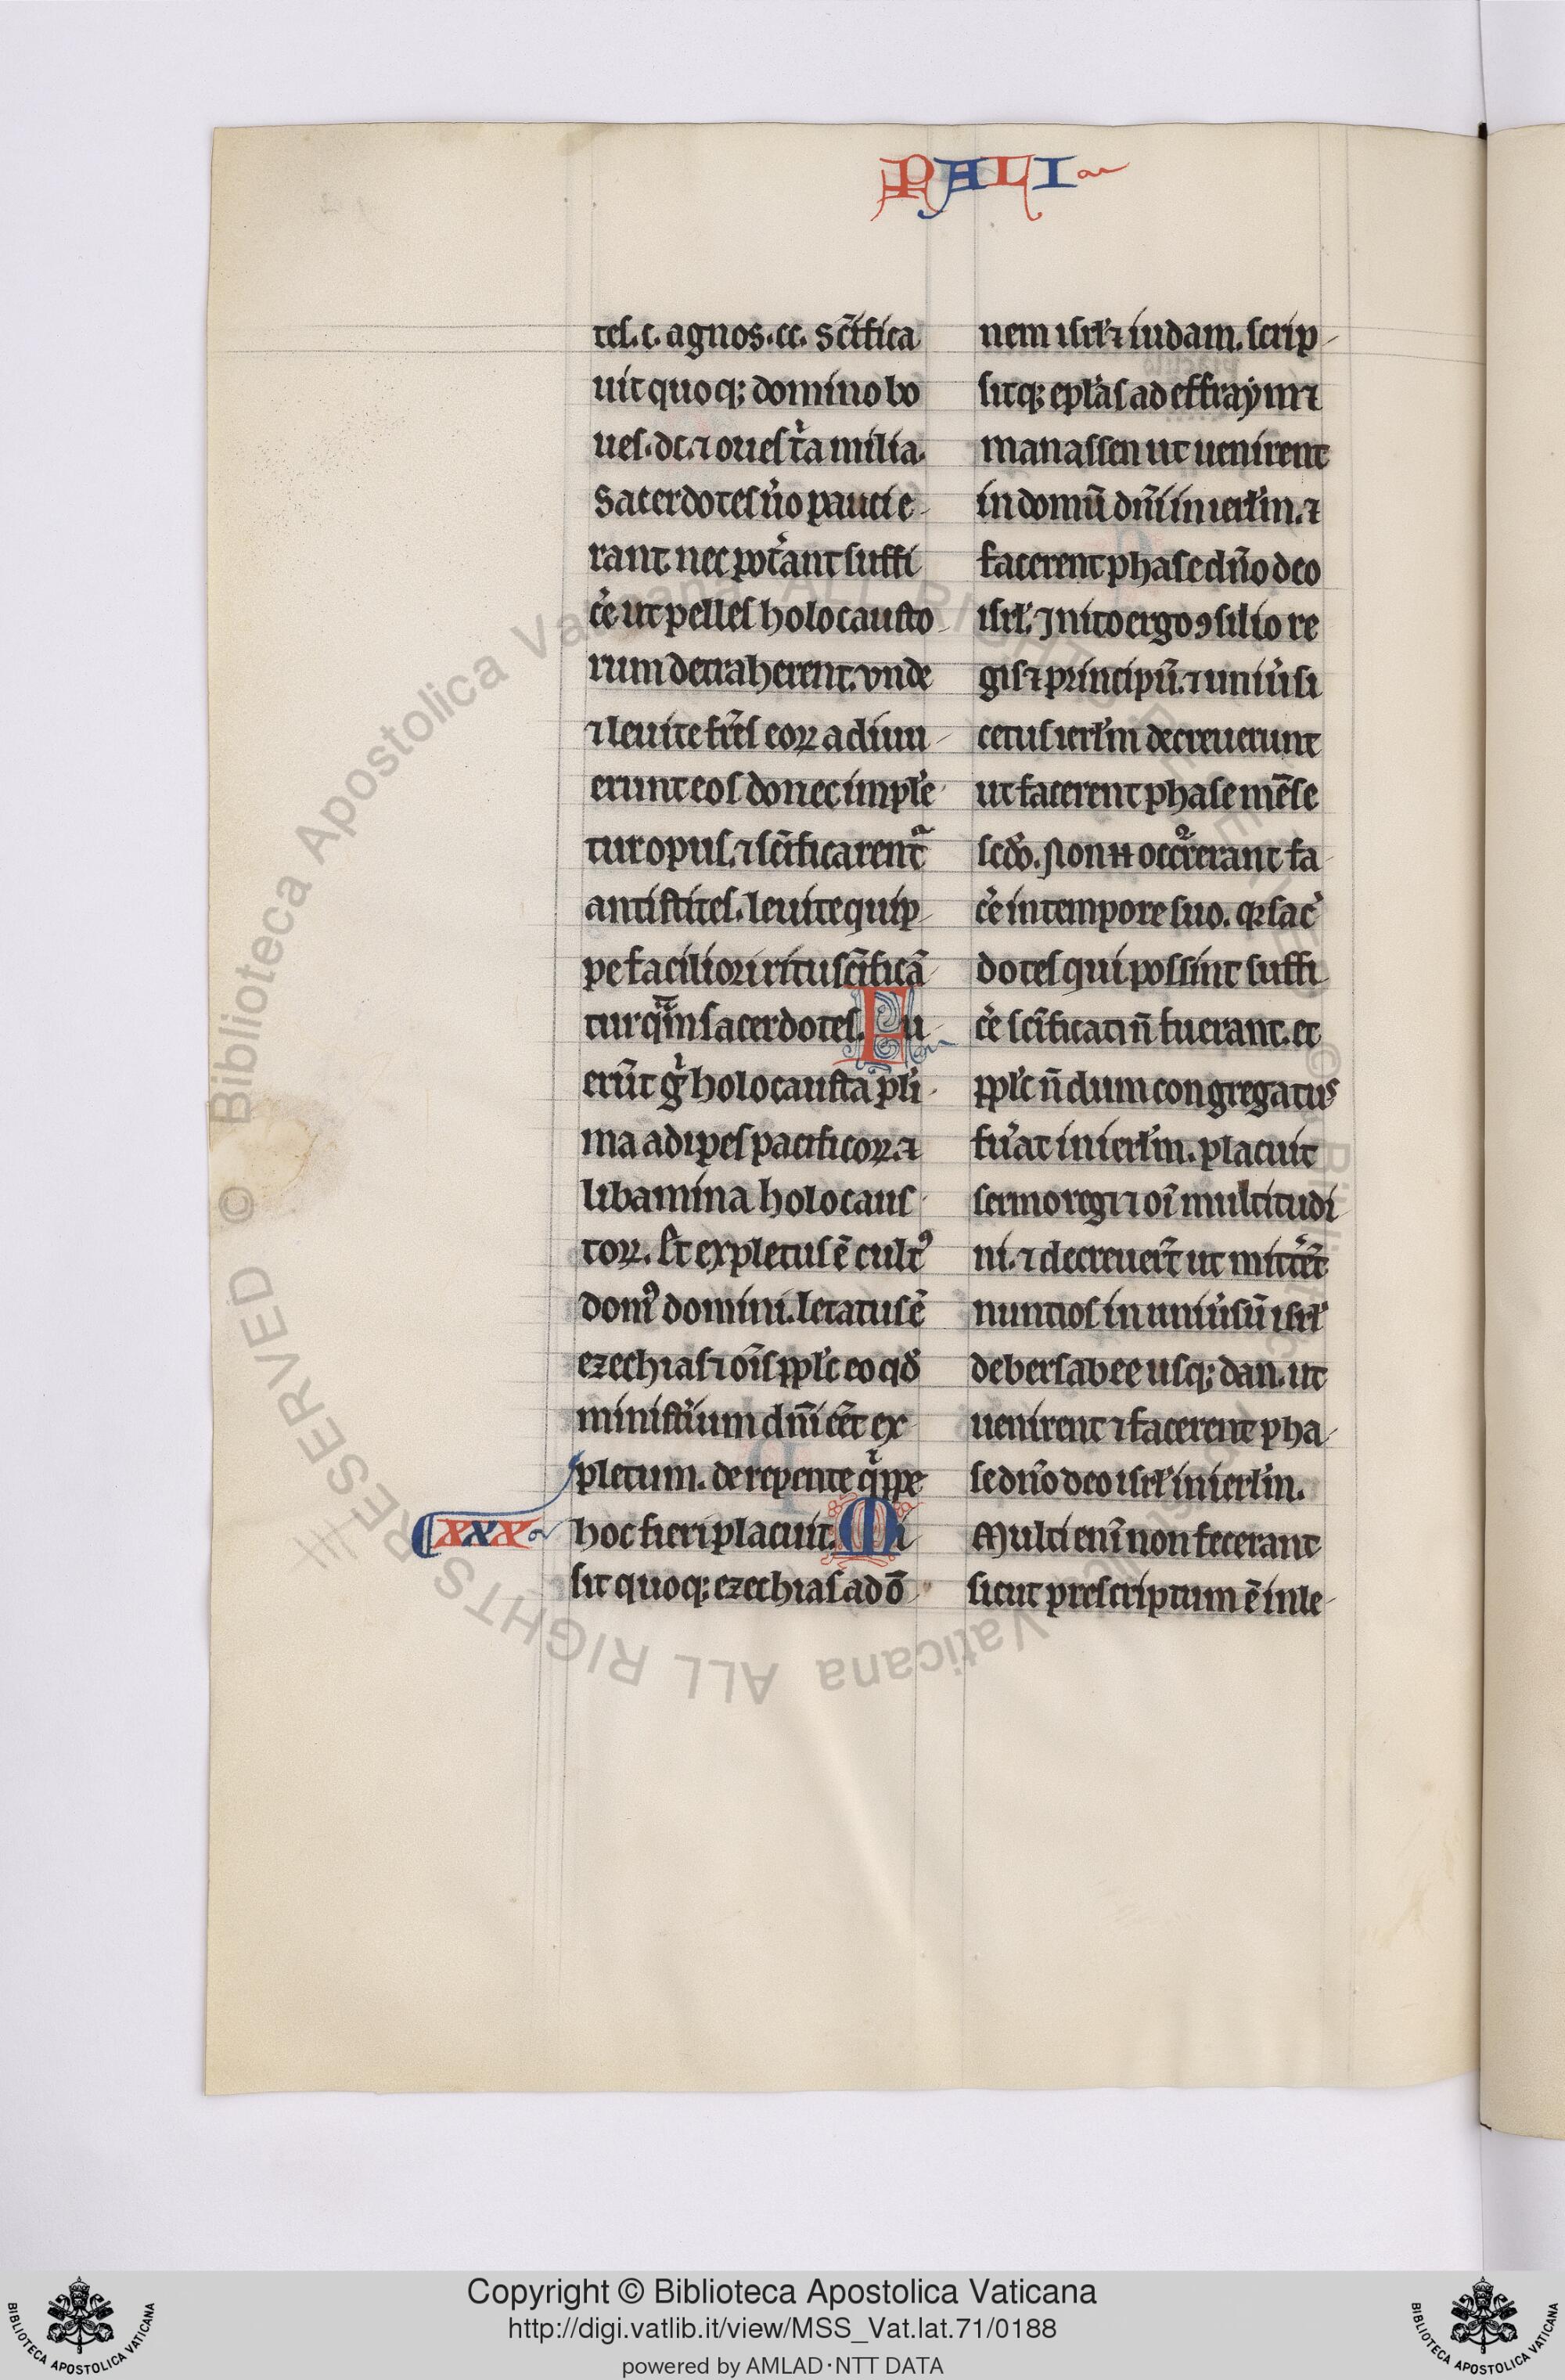 PALI
tes. c. agnos. cc. Sc̄ifica
uit quoq; domino bo
ues. dc. ⁊ oues tͥa milia.
Sacerdotes ũo pauci e-
rant. nec pot̾ant suffi
c̾e ut pelles holocausto-
rum detraherent. vnde
⁊ leuite fr̄es eoꝝ adiuu-
erunt eos donec impl̾e-
tur opus. ⁊ sc̄ificarent᷑
antistites. leuite quip-
pe faciliori ritu sc̄ificā-
tur qͣm sacerdotes. Fu-
erūt gͥ holocausta pl̾i-
ma adipes pacificoꝝ. ⁊
libamina holocaus-
toꝝ. Et expletus ē cultꝰ
domꝰ domini. letatus ē
ezechias ⁊ oīs ppl̄c eo qd̾
minist̾ium dn̄i eēt ex
pletum. de repente qͥppe
XXX hoc fieri placuit. Mi
sit quoq; ezechias ad ō-
nem isrl̾ ⁊ iudam. scrip-
sitq; epl̾as ad effraym ⁊
manassen ut uenirent
in domū dn̄i in ierl̾m. ⁊
facerent phase dn̄o deo
isrl̾. Inito ergo ꝯsilio re
gis ⁊ principū. ⁊ uniũsi
cetus ierl̾m decreuerunt
ut facerent phase mēse
scd̾o. Non ꝉꝉ occͬrerant fa
c̾e in tempore suo. qꝛ sac̾
dotes qui possint suffi
c̾e sc̄ificati n̄ fuerant. et
ppl̄c n̄dum congregatus
fu̾at in ierl̾m. placuit
sermo regi ⁊ oī multitudi
ni. ⁊ decreuer̄t ut mitt̾ēt
nuntios in uniũsū isrl̾
de bersabee usq; dan. ut
uenirent ⁊ facerent pha-
se dn̄o deo isrl̾ in ierl̾m.
Multi enī non fecerant
sicut prescriptum ē in le-
© Biblioteca Apostolica Vaticana ALL RIGHTS RESERVED
Copyright © Biblioteca Apostolica Vaticana
http://digi.vatlib.it/view/MSS_Vat.lat.71/0188
powered by AMLAD·NTT DATA
BIBLIOTECA APOSTOLICA VATICANA
BIBLIOTECA APOSTOLICA VATICANA